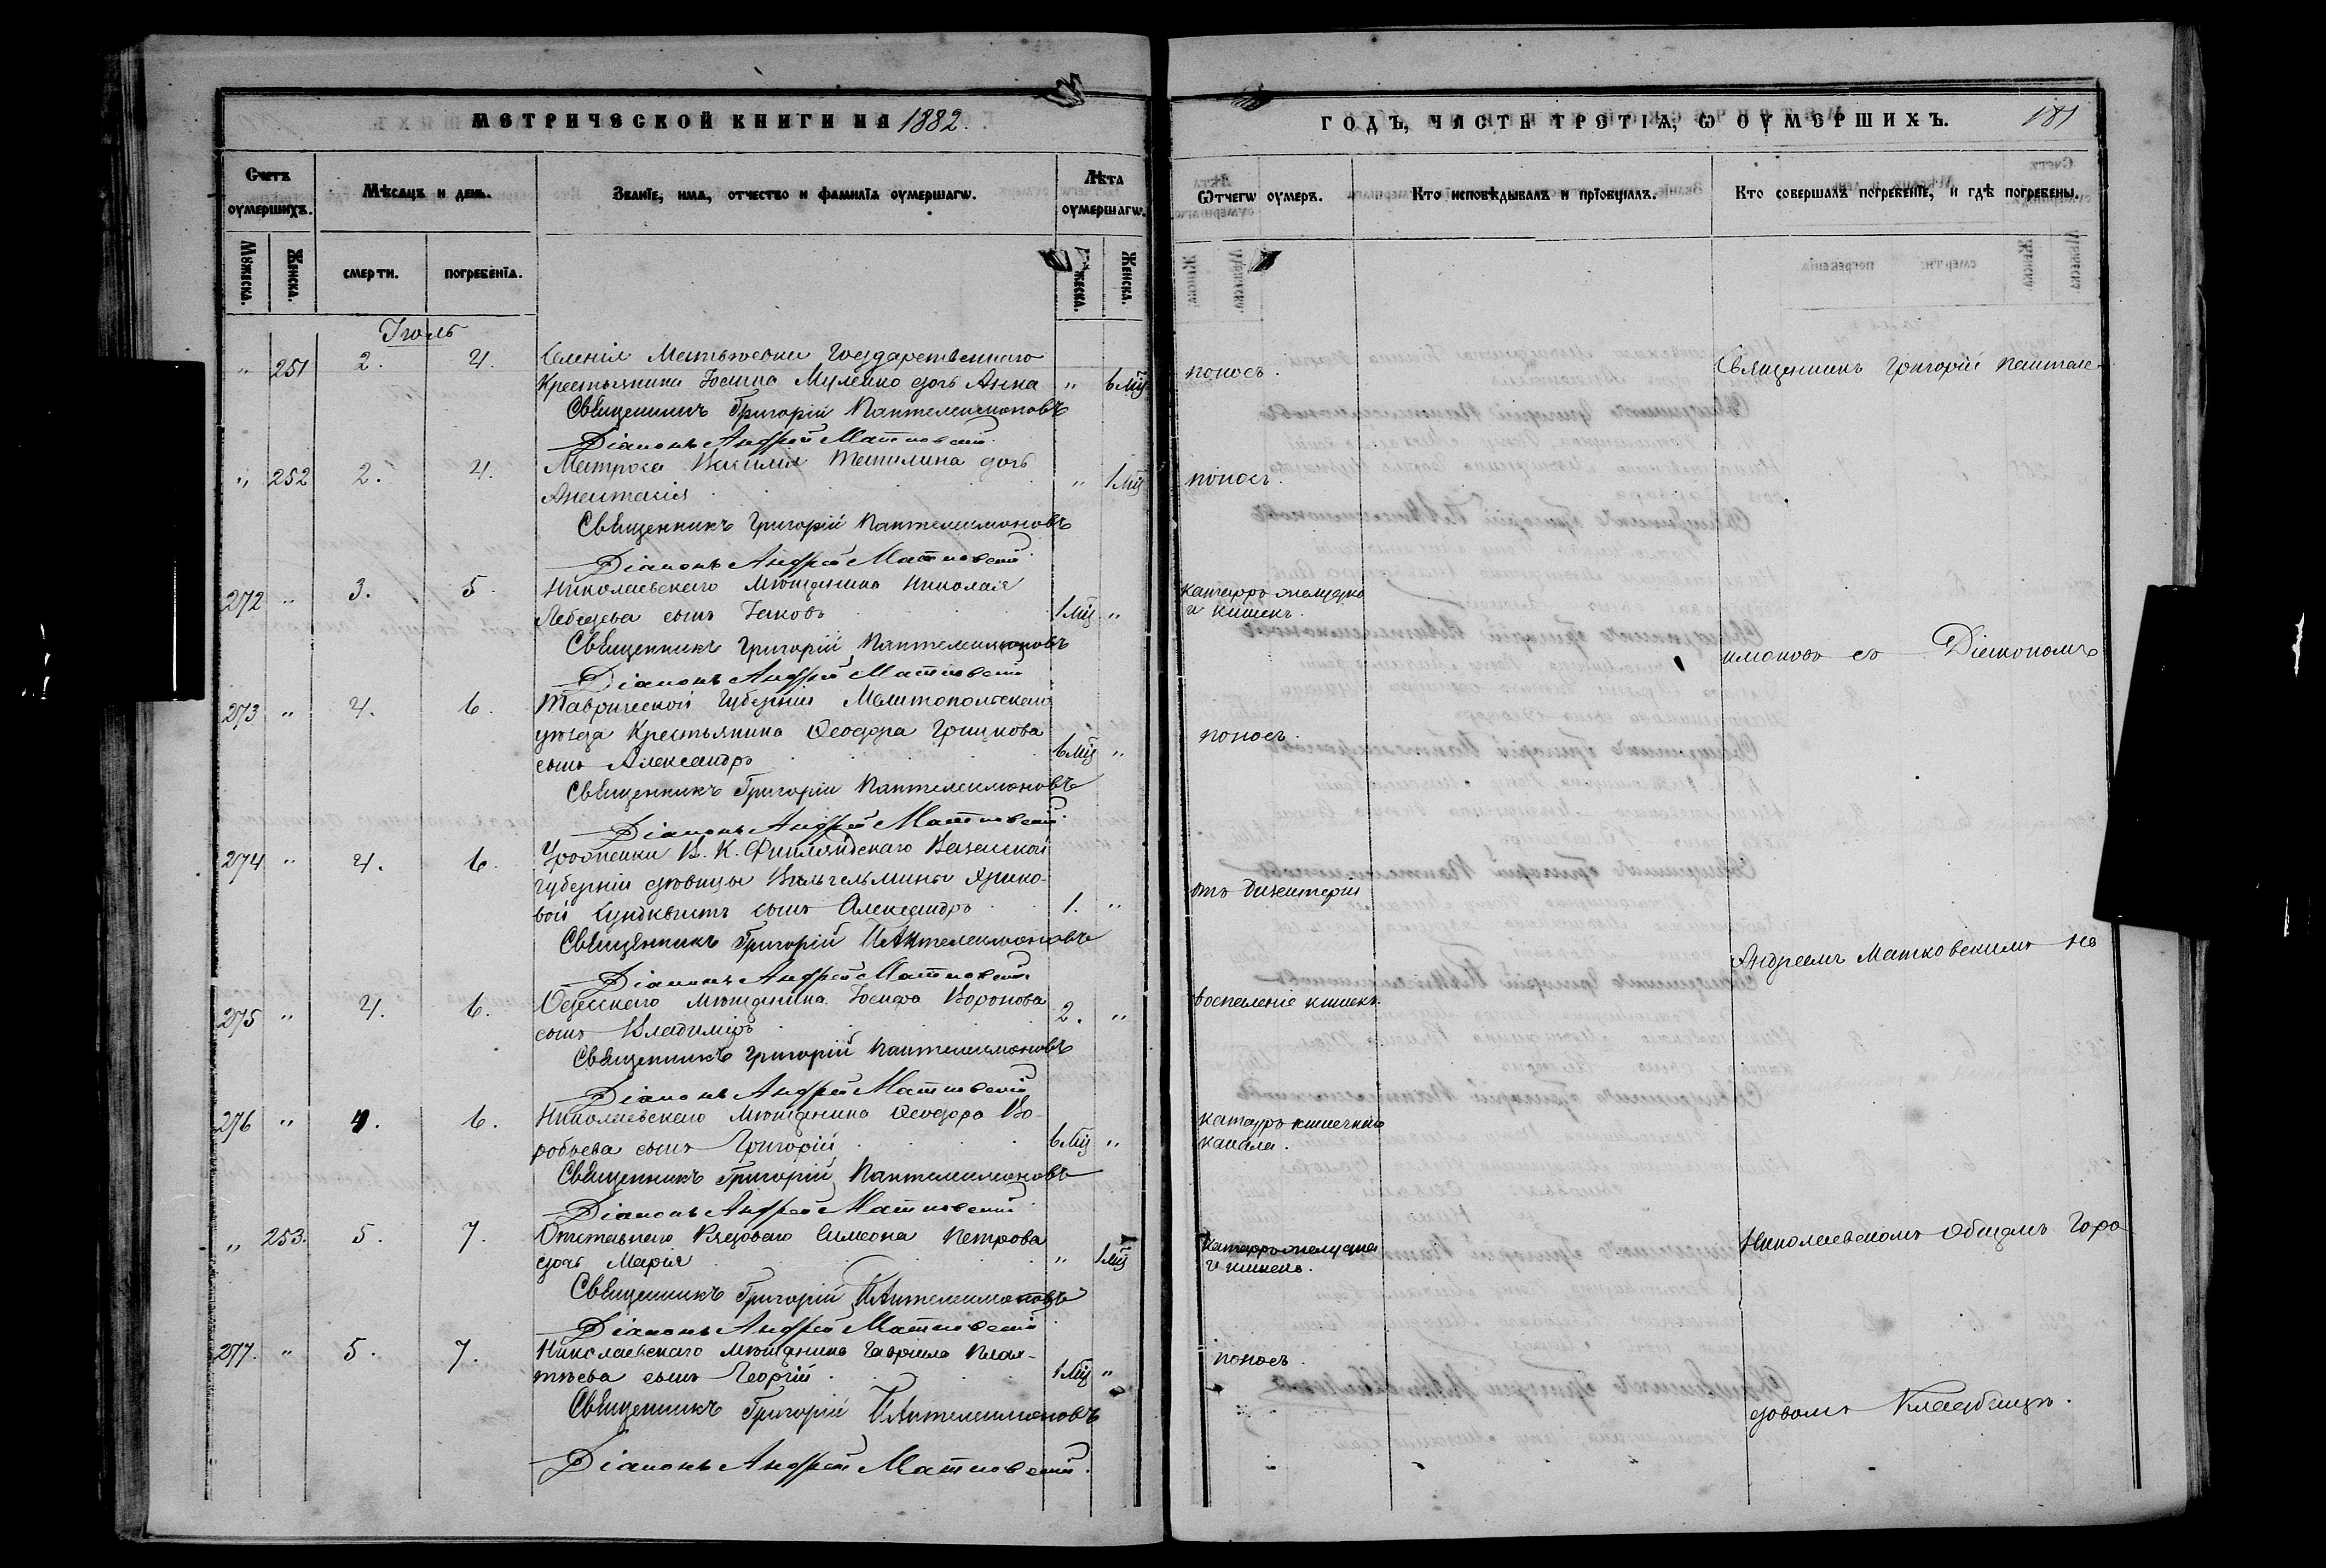 МЕТРИЧЕСКОЙ КНИГИ НА 1882.
Счетъ оумершихъ.
Мѣсяцъ и день.
Званїе, имя, отчество и фамилїя оумершагѡ.
Лѣта оумершагѡ.
Мꙋжеска.
Женска.
смерти.
погребенїя.
Мꙋжеска.
Женска.
Іюль
" 251 2. 4. Селенія Матвѣевки Государственнаго
Крестьянина Іосифа Муленко дочь Анна " 6 мц
Священникъ Григорій Пантелеимоновъ
Діаконъ Андрей Матковскій
" 252 2. 4. Матроса Василія Темилина дочь
Анастасія " 1 мц
Священникъ Григорій Пантелеимоновъ
Діаконъ Андрей Матковскій
272 " 3. 5. Николаевскаго Мѣщанина Николая
Лебедева сынъ Іаковъ 1 мц "
Священникъ Григорій Пантелеимоновъ
Діаконъ Андрей Матковскій
273 " 4. 6. Таврической Губерніи Мелитопольскаго
уѣзда Крестьянина Ѳеодора Грицкова
сынъ Александръ 6 мц "
Священникъ Григорій Пантелеимоновъ
Діаконъ Андрей Матковскій
274 " 4. 6. Уроженки В. К. Финляндскаго Вазаской
губерніи дѣвицы Вильгельмины Эрико-
вой Сундквистъ сынъ Александръ 1. "
Священникъ Григорій Пантелеимоновъ
Діаконъ Андрей Матковскій
275 " 4. 6. Одесскаго Мѣщанина Іосифа Воронова
сынъ Владиміръ 2. "
Священникъ Григорій Пантелеимоновъ
Діаконъ Андрей Матковскій
276 " 4. 6. Николаевскаго Мѣщанина Ѳеодора Во-
робьева сынъ Григорій 6 мц "
Священникъ Григорій Пантелеимоновъ
Діаконъ Андрей Матковскій
" 253. 5. 7. Отставнаго Рядоваго Симеона Петрова
дочь Марія " 1 мц
Священникъ Григорій Пантелеимоновъ
Діаконъ Андрей Матковскій
277. " 5. 7. Николаевскаго мѣщанина Гавріила
сынъ Георгій 1 мц "
Священникъ Григорій Пантелеимоновъ
Діаконъ Андрей Матковскій
ГОДЪ, ЧАСТЬ ТРЕТІѦ, Ѡ ОУМЕРШИХЪ. 181
Ѿчегѡ оумеръ.
Кто исповѣдывалъ и прїобщалъ.
Кто совершалъ погребенїе, и гдѣ погребены.
поносъ.
Священникъ Григорій Пантеле-
поносъ.
катарръ желудка
и кишекъ.
имоновъ съ Діакономъ
поносъ.
отъ дизентеріи
Андреемъ Матковскимъ на
воспаленіе кишекъ
катарръ кишечнаго
канала.
Николаевскомъ Общемъ Горо
катарръ желудка
и кишекъ.
поносъ.
довомъ Кладбищѣ.